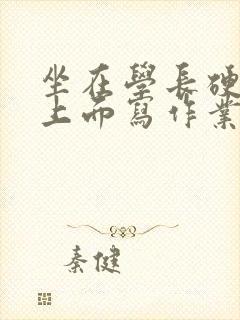 坐在學長硬
上而寫作業
秦健